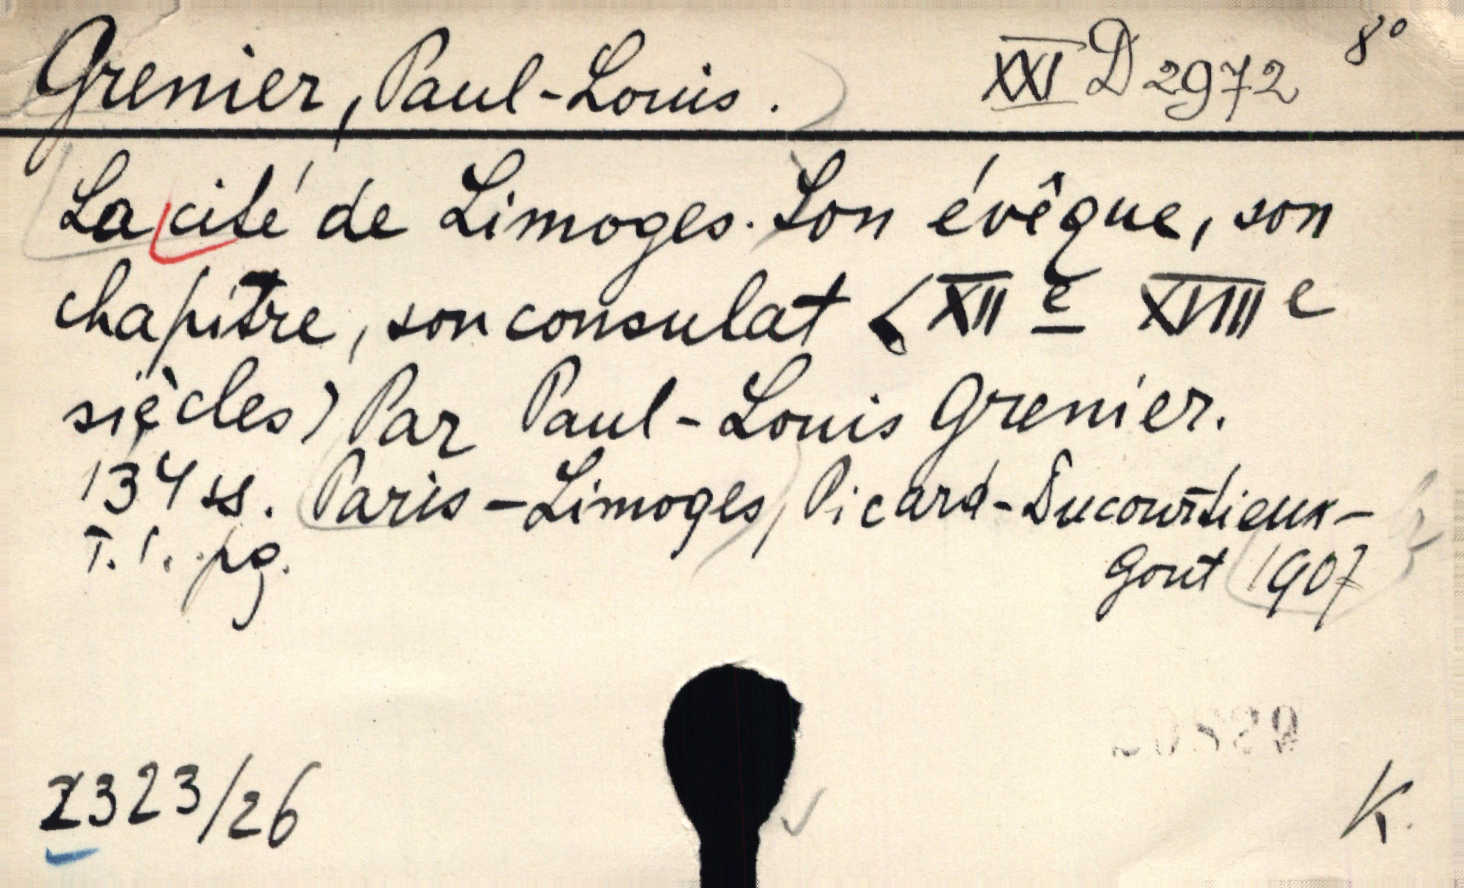 Grenier, Paul-Louis. XXI D 2972 8°
La cité de Limoges. Son évêque, son
chapitre, son consulat (XIIe XVIIIe
siècles) Par Paul-Louis Grenier.
134 ss. Paris-Limoges, Picard-Ducourtieux-
T. 1. pg. Gout 1907
Z323/26 K.